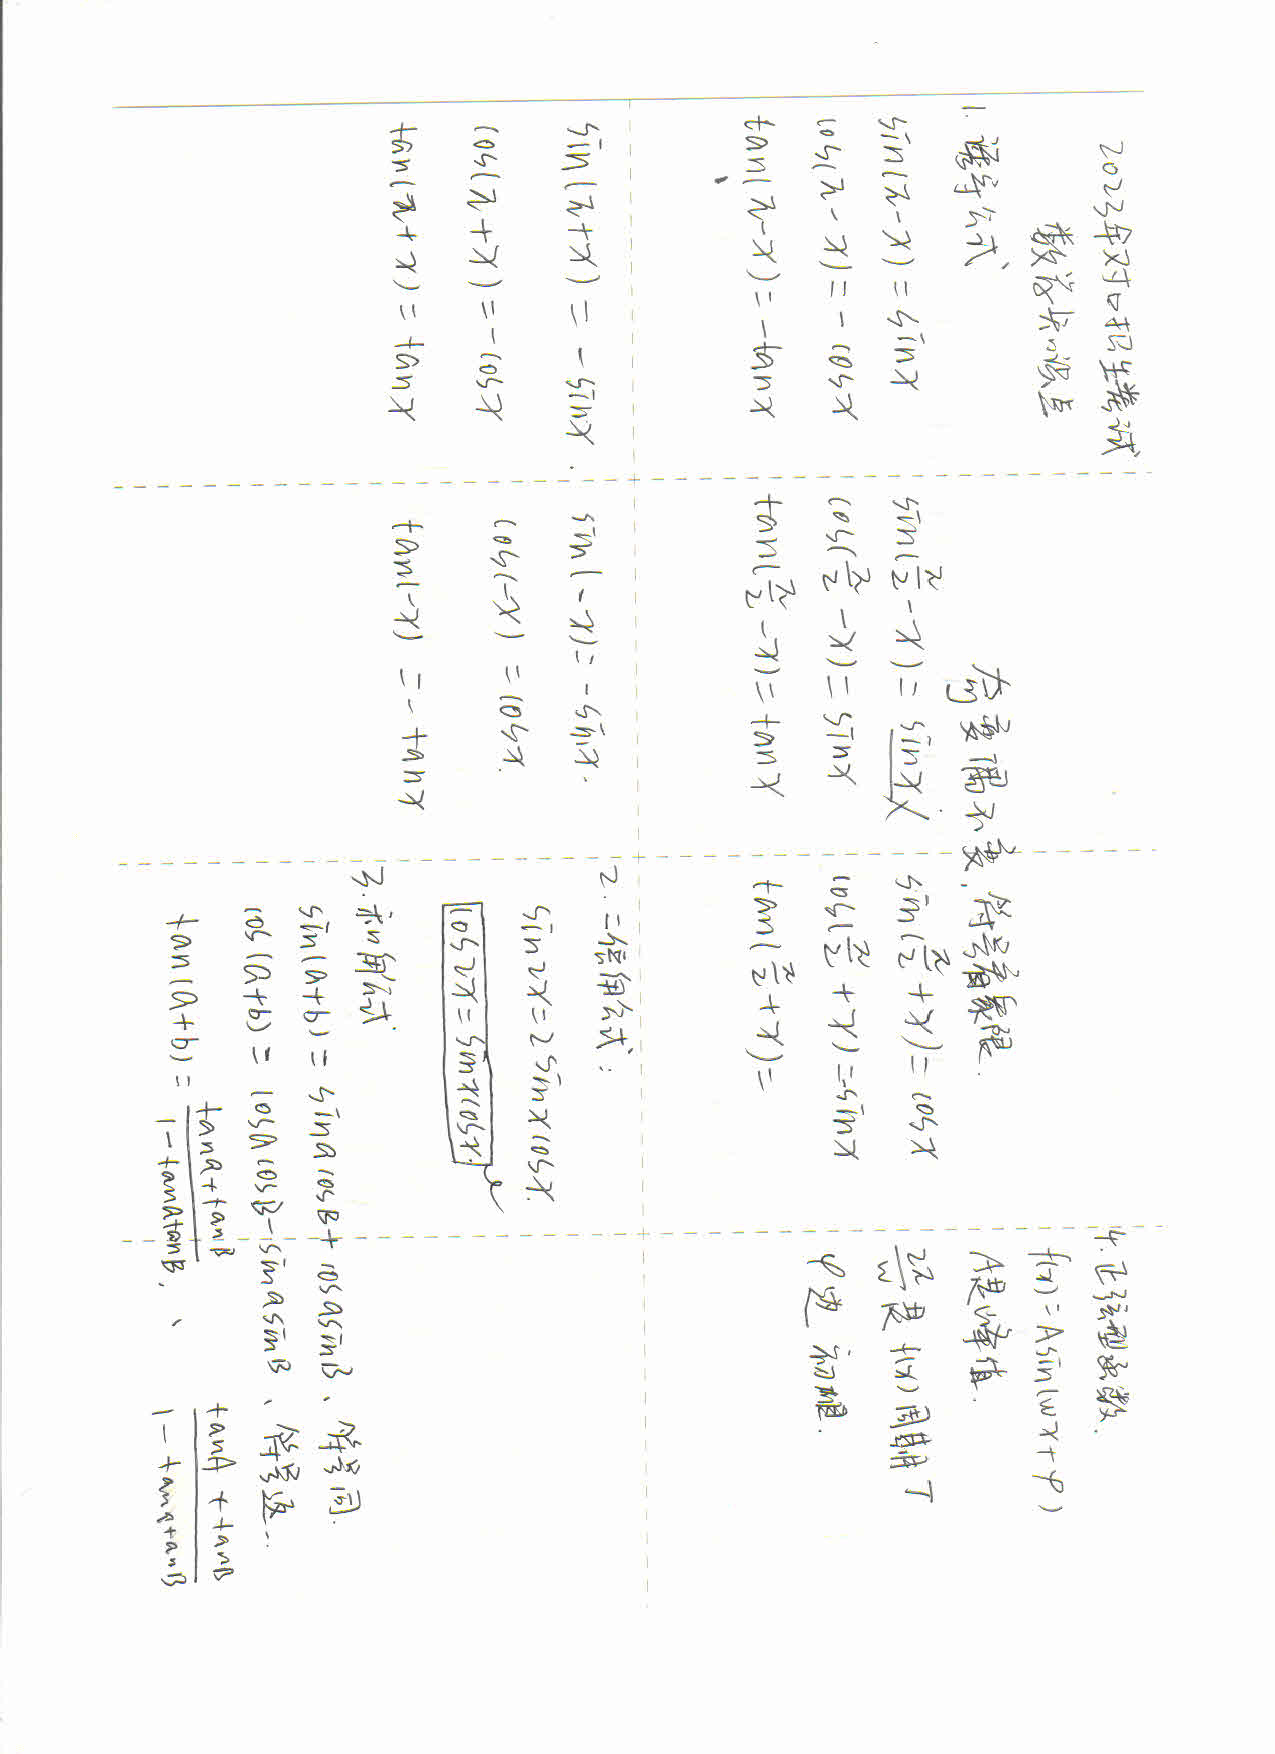 2023年对口招生考试
数学知识点
1. 诱导公式
sin(π-x)=sinx
cos(π-x)=-cosx
tan(π-x)=-tanx
sin(π+x)=-sinx.
cos(π+x)=-cosx
tan(π+x)=tanx
奇变偶不变,符号看象限.
sin(π/2-x)=sinx
cos(π/2-x)=sinx
tan(π/2-x)=tanx
sin(-x)=-sinx.
cos(-x)=cosx.
tan(-x)=-tanx
sin(π/2+x)=cosx
cos(π/2+x)=-sinx
tan(π/2+x)=
2.二倍角公式:
sin2x=2sinxcosx.
cos2x=sinxcosx.
3.求和角公式
sin(a+b)=sinacosB+cosasinB、符号同.
cos(a+b)=cosAcosB-sinasinB、符号返…
tan(a+b)=(tana+tanB)/(1-tanAtanB)、 (tanA+tanB)/(1-tanatanB)
4.正弦型函数.
f(x)=Asin(wx+φ)
A是峰值.
2π/w是f(x)周期T
φ是初相.